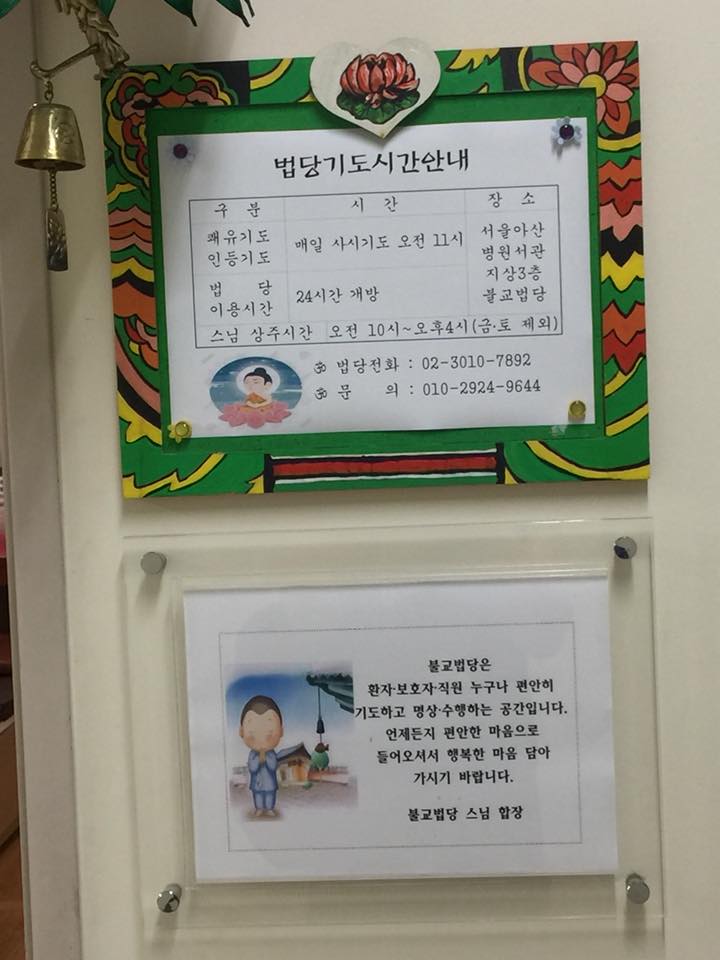 법당기도시간안내
구 분 시 간 장 소
쾌유기도
인등기도
매일 사시기도 오전 11시
서울아산
병원서관
지상3층
불교법당
법 당
이용시간
24시간 개방
스님 상주시간 오전 10시~오후4시(금·토 제외)
ॐ 법당전화 : 02-3010-7892
ॐ 문 의 : 010-2924-9644
불교법당은
환자·보호자·직원 누구나 편안히
기도하고 명상·수행하는 공간입니다.
언제든지 편안한 마음으로
들어오셔서 행복한 마음 담아
가시기 바랍니다.
불교법당 스님 합장